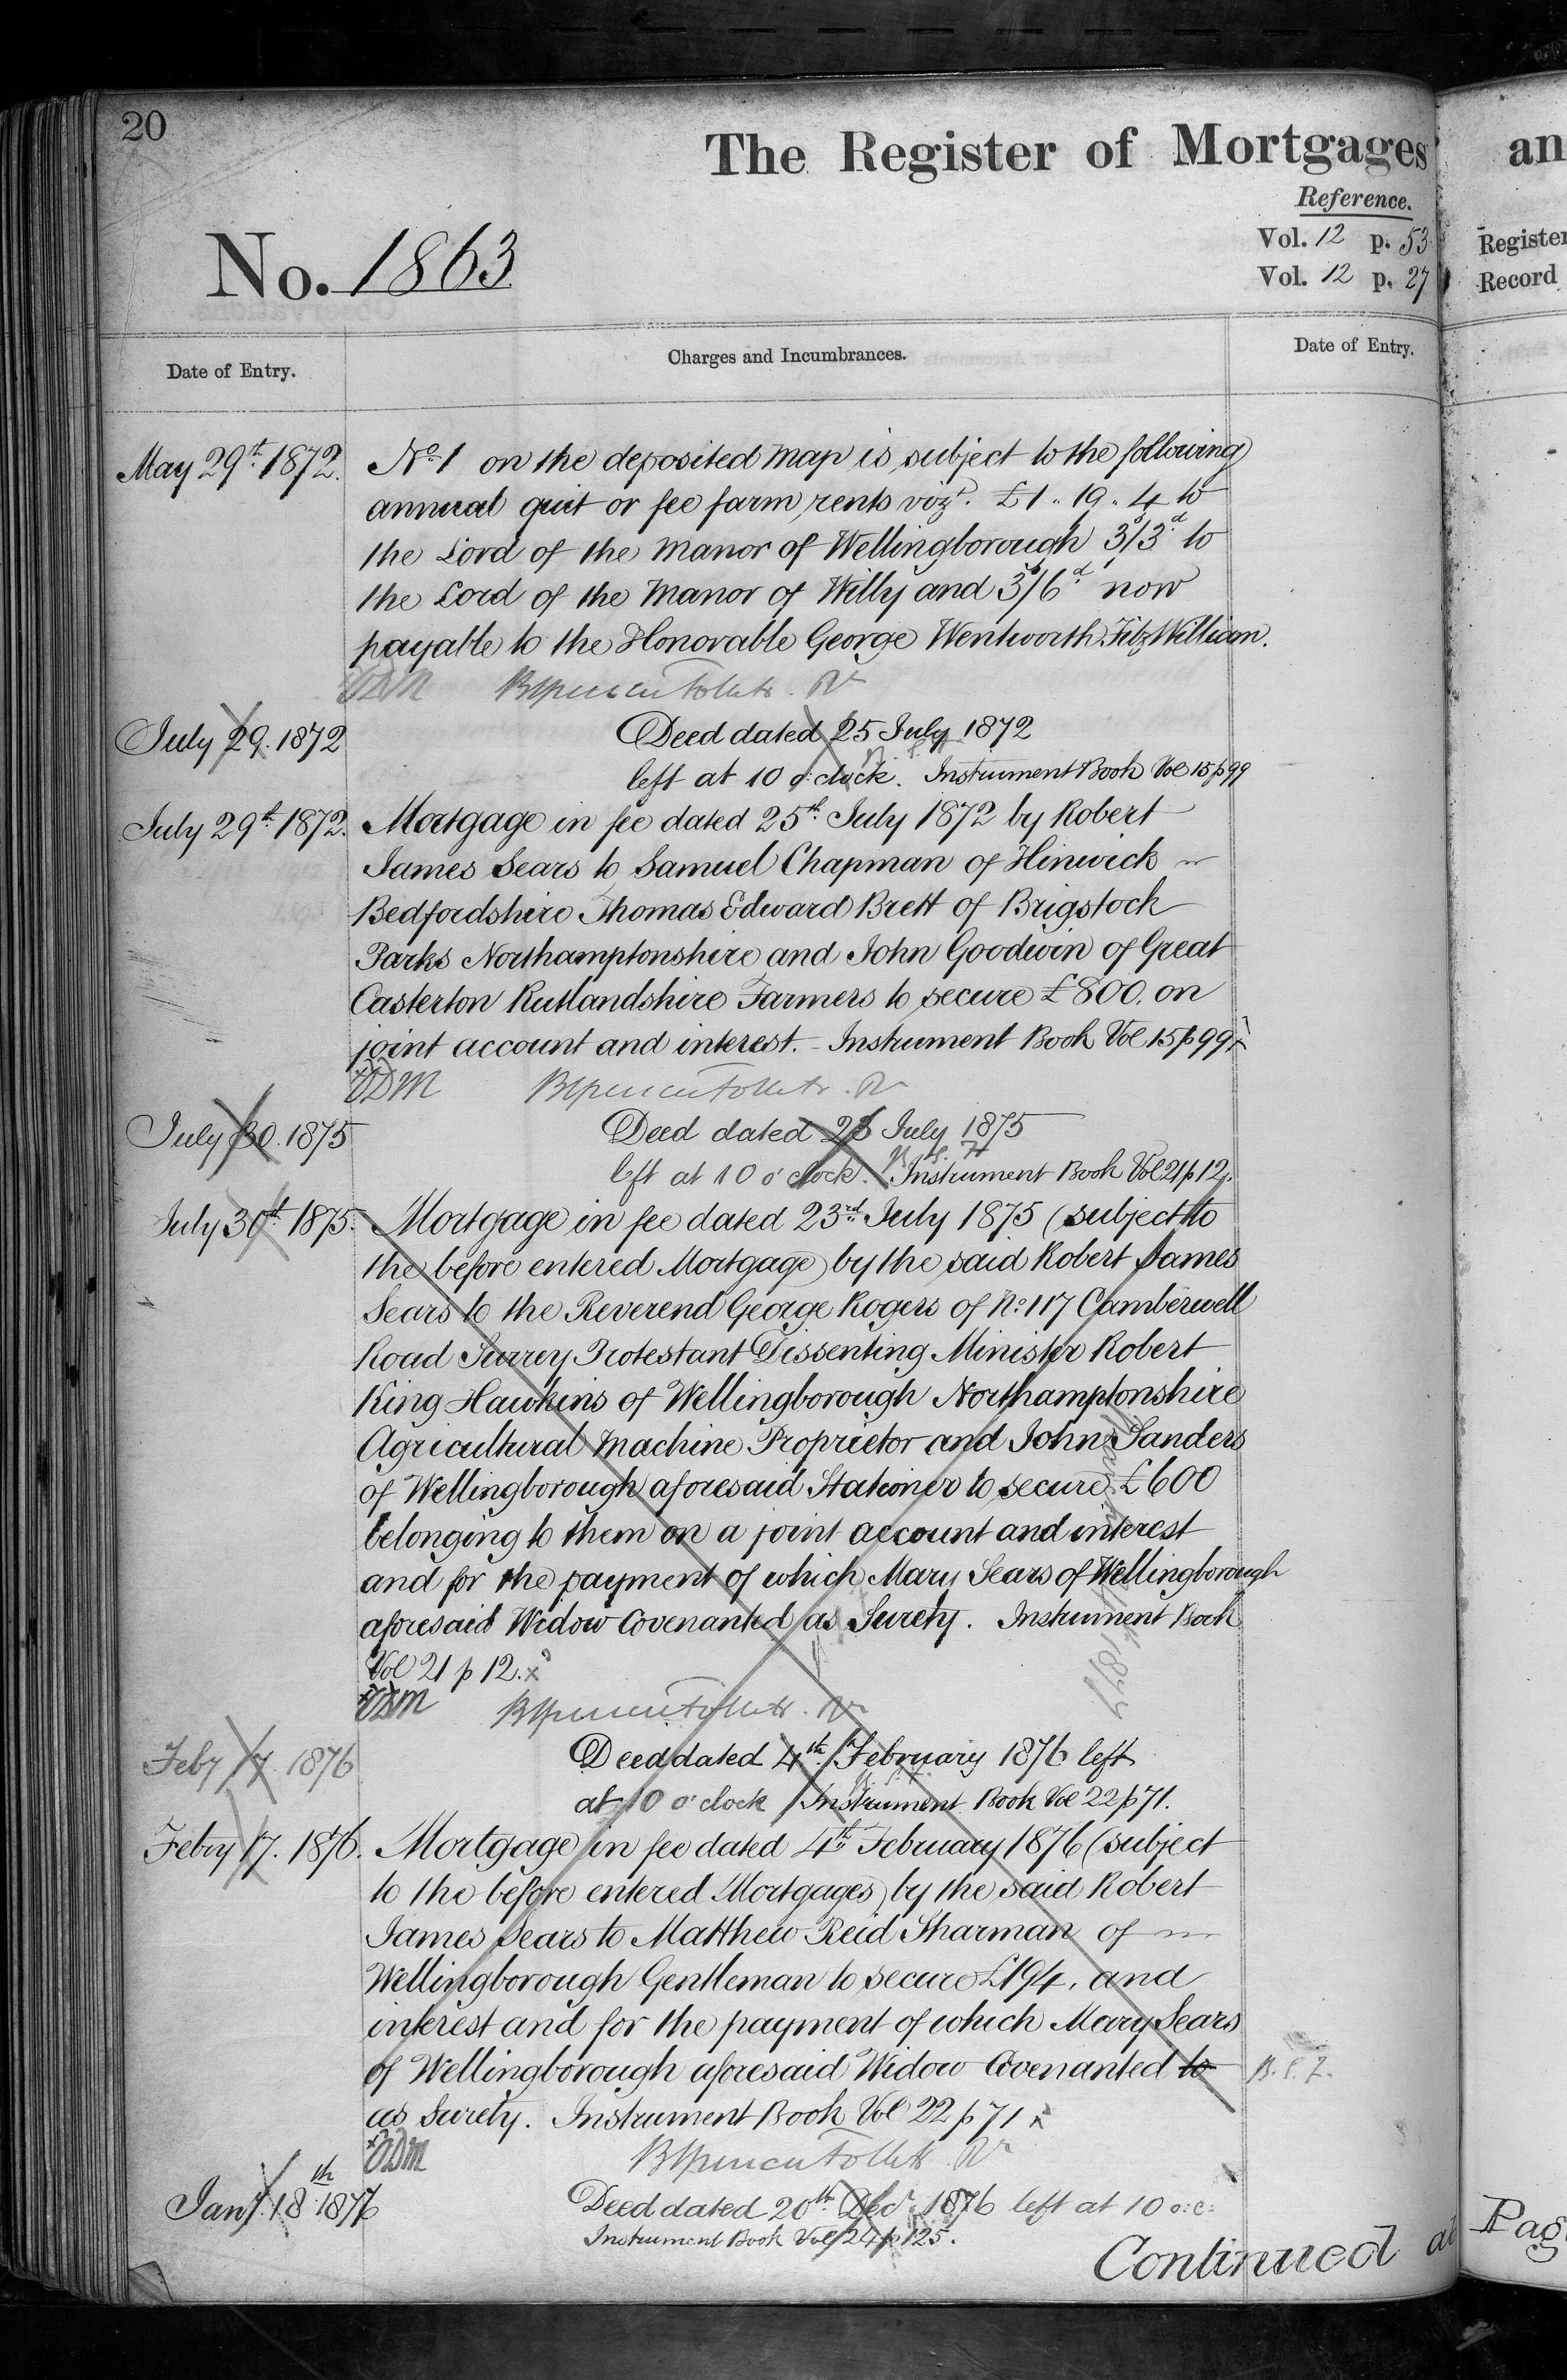 20
The Register of Mortgages
an
Reference.
No. 1863
Vol. 12 p. 53
Vol. 12 p. 27
Register
Record
Date of Entry.
Charges and Incumbrances.
Date of Entry.
May 29th. 1872. No. 1 on the deposited Map is subject to the following
annual quit or fee farm rents vizt. £1 .. 19 .. 4 to
the Lord of the Manor of Wellingborough 3s/3d. to
the Lord of the Manor of Willy and 3s/6d. now
payable to the Honorable George Wentworth FitzWilliam.
July 29. 1872 Deed dated 25 July 1872
left at 10 o'clock. Instrument Book Vol 15 p 99
July 29th. 1872. Mortgage in fee dated 25th. July 1872 by Robert
James Sears to Samuel Chapman of Hinwick
Bedfordshire Thomas Edward Brett of Brigstock
Parks Northamptonshire and John Goodwin of Great
Casterton Rutlandshire Farmers to secure £800. on
joint account and interest. - Instrument Book Vol 15 p 99
July 30. 1875 Deed dated 23 July 1875
left at 10 o'clock. Instrument Book Vol 21 p 12.
July 30th. 1875. Mortgage in fee dated 23rd. July 1875 (subject to
the before entered Mortgage) by the said Robert James
Sears to the Reverend George Rogers of No. 117 Camberwell
Road Surrey Protestant Dissenting Minister Robert
King Hawkins of Wellingborough Northamptonshire
Agricultural Machine Proprietor and John Sanders
of Wellingborough aforesaid Stationer to secure £600
belonging to them on a joint account and interest
and for the payment of which Mary Sears of Wellingborough
aforesaid Widow Covenanted as Surety. Instrument Book
Vol 21 p 12.
Feby 17. 1876 Deed dated 4th. February 1876 left
at 10 o'clock Instrument Book Vol 22 p 71.
Febry 17. 1876. Mortgage in fee dated 4th. February 1876 (subject
to the before entered Mortgages) by the said Robert
James Sears to Matthew Reid Sharman of
Wellingborough Gentleman to secure £194. and
interest and for the payment of which Mary Sears
of Wellingborough aforesaid Widow Covenanted to
as Surety. Instrument Book Vol 22 p 71
Jany. 18th 1877 Deed dated 20th. Decr. 1876 left at 10 o:c:
Instrument Book Vol 24 p 125.
Continued at
Pag